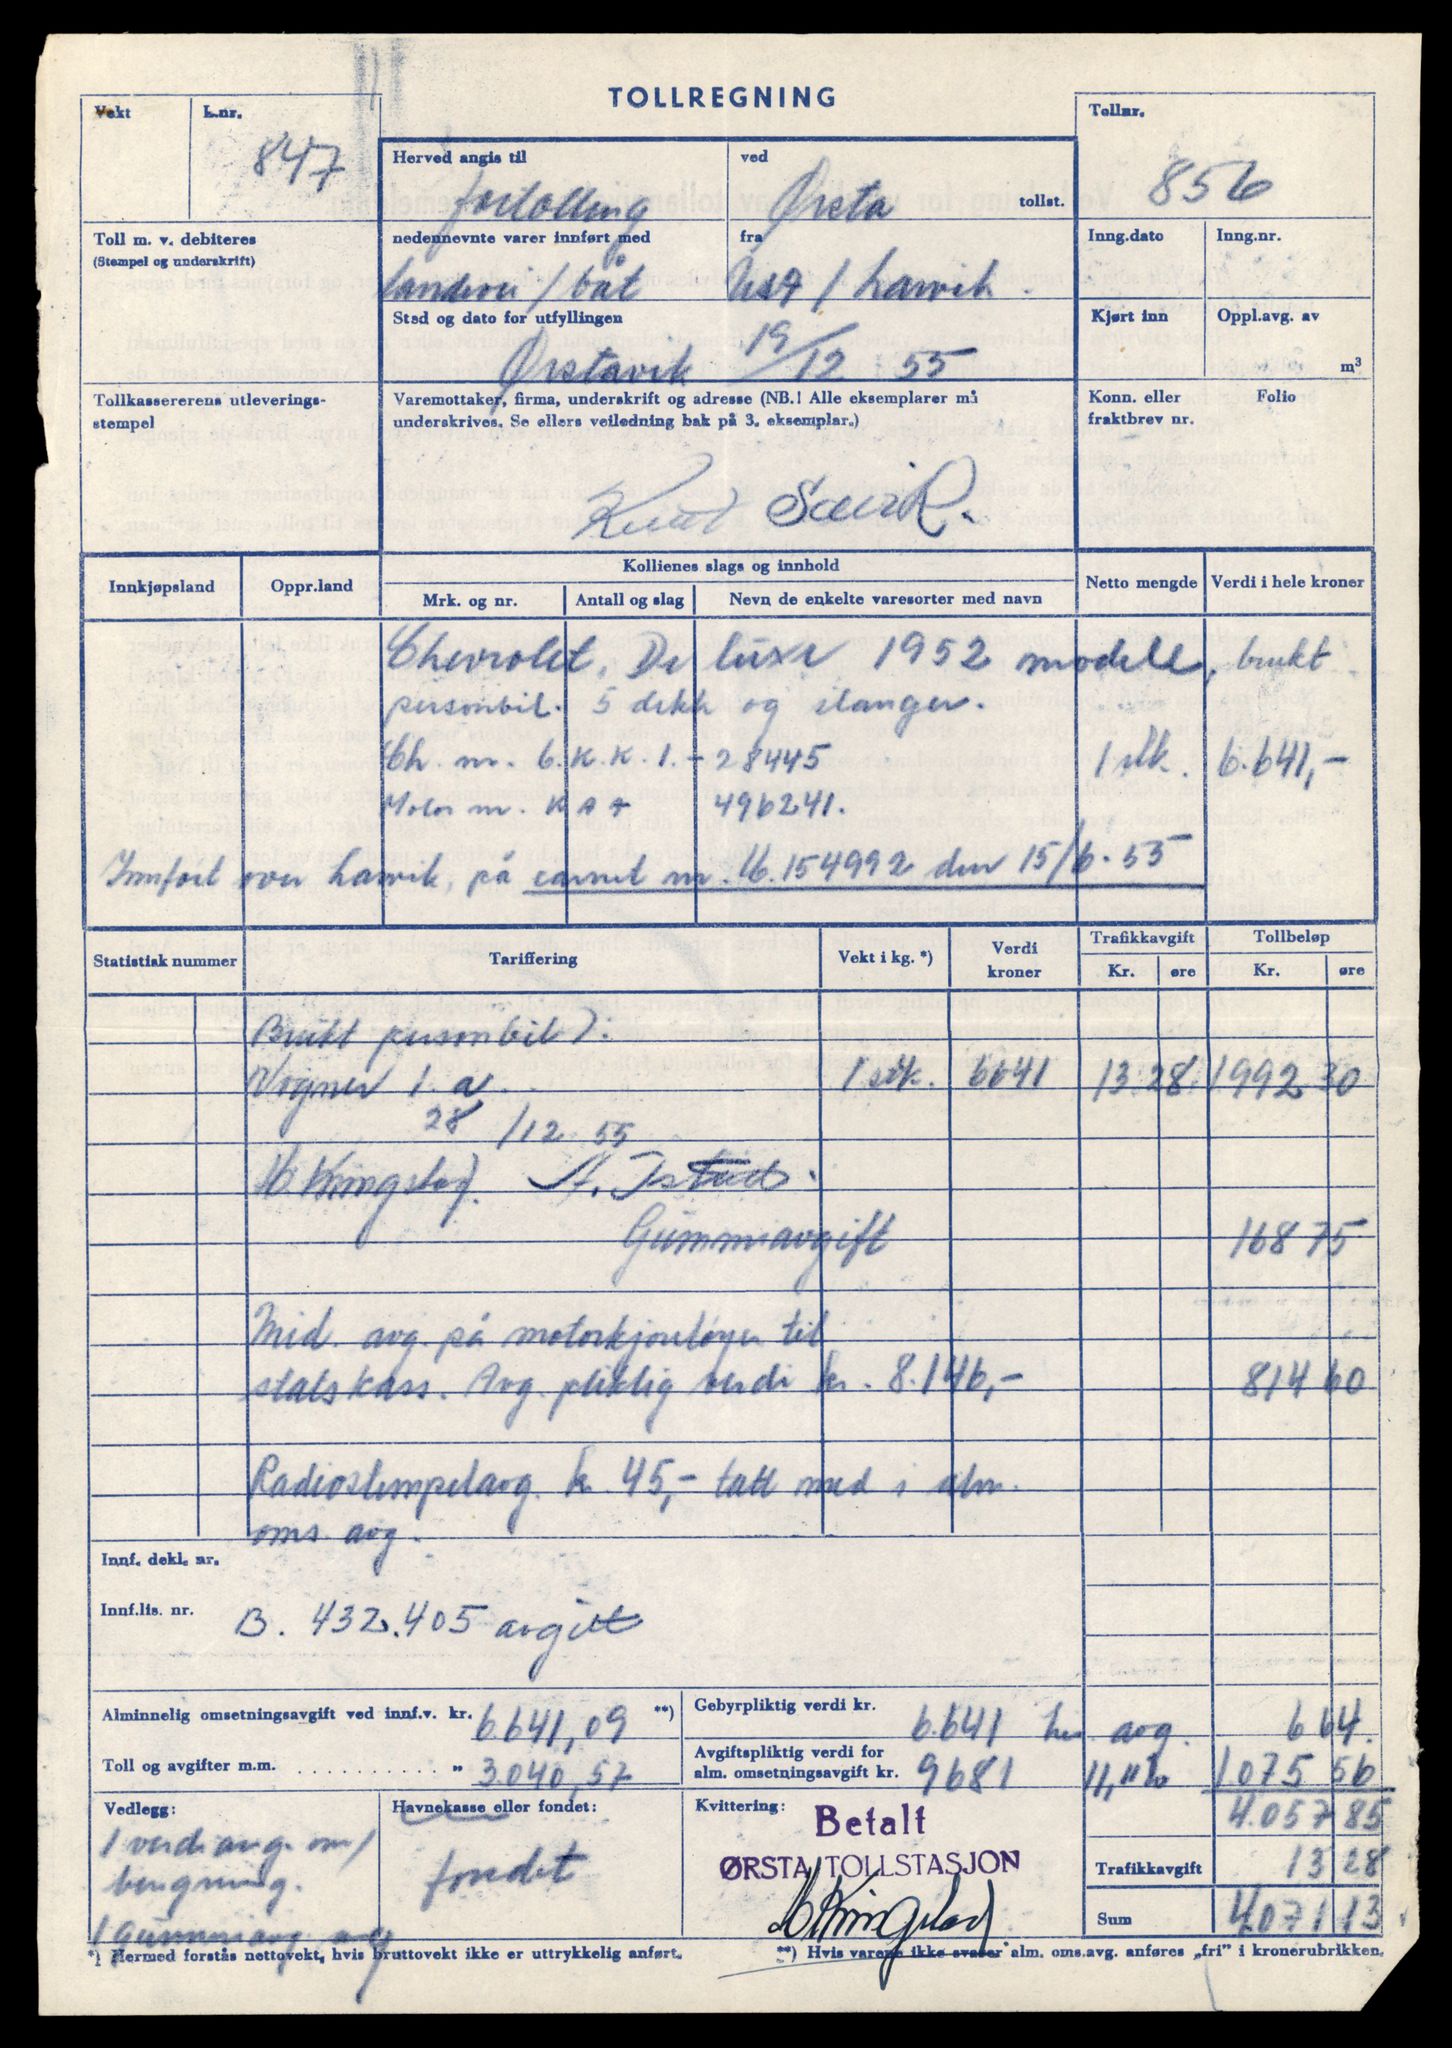 TOLLREGNING
Vekt
L.nr.
847
Herved angis til
fortolling
ved
Ørsta
tollst.
Tollnr.
856
Toll m. v. debiteres
(Stempel og underskrift)
nedennevnte varer innført med
landevei / båt
fra
Usa / Larvik
Inng.dato
Inng.nr.
Sted og dato for utfyllingen
Ørstavik 19/12 55
Kjørt inn
Oppl.avg. av
m³
Tollkassererens utleverings-
stempel
Varemottaker, firma, underskrift og adresse (NB.! Alle eksemplarer må
underskrives. Se ellers veiledning bak på 3. eksemplar.)
Konn. eller
fraktbrev nr.
Folio
Knut Sævik.
Innkjøpsland
Oppr.land
Kollienes slags og innhold
Mrk. og nr.
Antall og slag
Nevn de enkelte varesorter med navn
Netto mengde
Verdi i hele kroner
Chevrolet, De luxe 1952 modell, brukt
personbil. 5 dekk og slanger.
Ch. nr. 6. K. K. 1. - 28445 1 stk. 6.641,-
Motor nr. K A A 496241.
Innført over Larvik, på carnet nr. U. 154992 den 15/6. 55
Statistisk nummer
Tariffering
Vekt i kg. *)
Verdi
kroner
Trafikkavgift
Kr.
øre
Tollbeløp
Kr.
øre
Brukt personbil):
Vogner 1. a. 1 stk. 6641 13 28 1992 30
28/12 55
M. Kringstad.
Gummiavgift 168 75
Mid. avg. på motorkjøretøyer til
statskass. Avg. pliktig verdi kr. 8.146,- 814 60
Radiostempelavg. kr. 45,- tatt med i alm.
oms. avg.
Innf. dekl. nr.
Innf.lis. nr.
B. 432.405 avgitt
Alminnelig omsetningsavgift ved innf.v. kr.
6.641,09
**)
Gebyrpliktig verdi kr.
6.641 avg. 664.
Toll og avgifter m.m. . . . . . . . . . . "
3.040,57
Avgiftspliktig verdi for
alm. omsetningsavgift kr.
9681 11,11% 1075 56
Vedlegg:
1 verdiang. om/
bergning.
1 gummiavg.
Havnekasse eller fondet:
fondet
Kvittering:
Betalt
ØRSTA TOLLSTASJON
M Kringstad
4.057 85
Trafikkavgift
13 28
Sum
4.071 13
*) Hermed forstås nettovekt, hvis bruttovekt ikke er uttrykkelig anført.
**) Hvis varene ikke svarer alm. oms.avg. anføres „fri” i kronerubrikken.